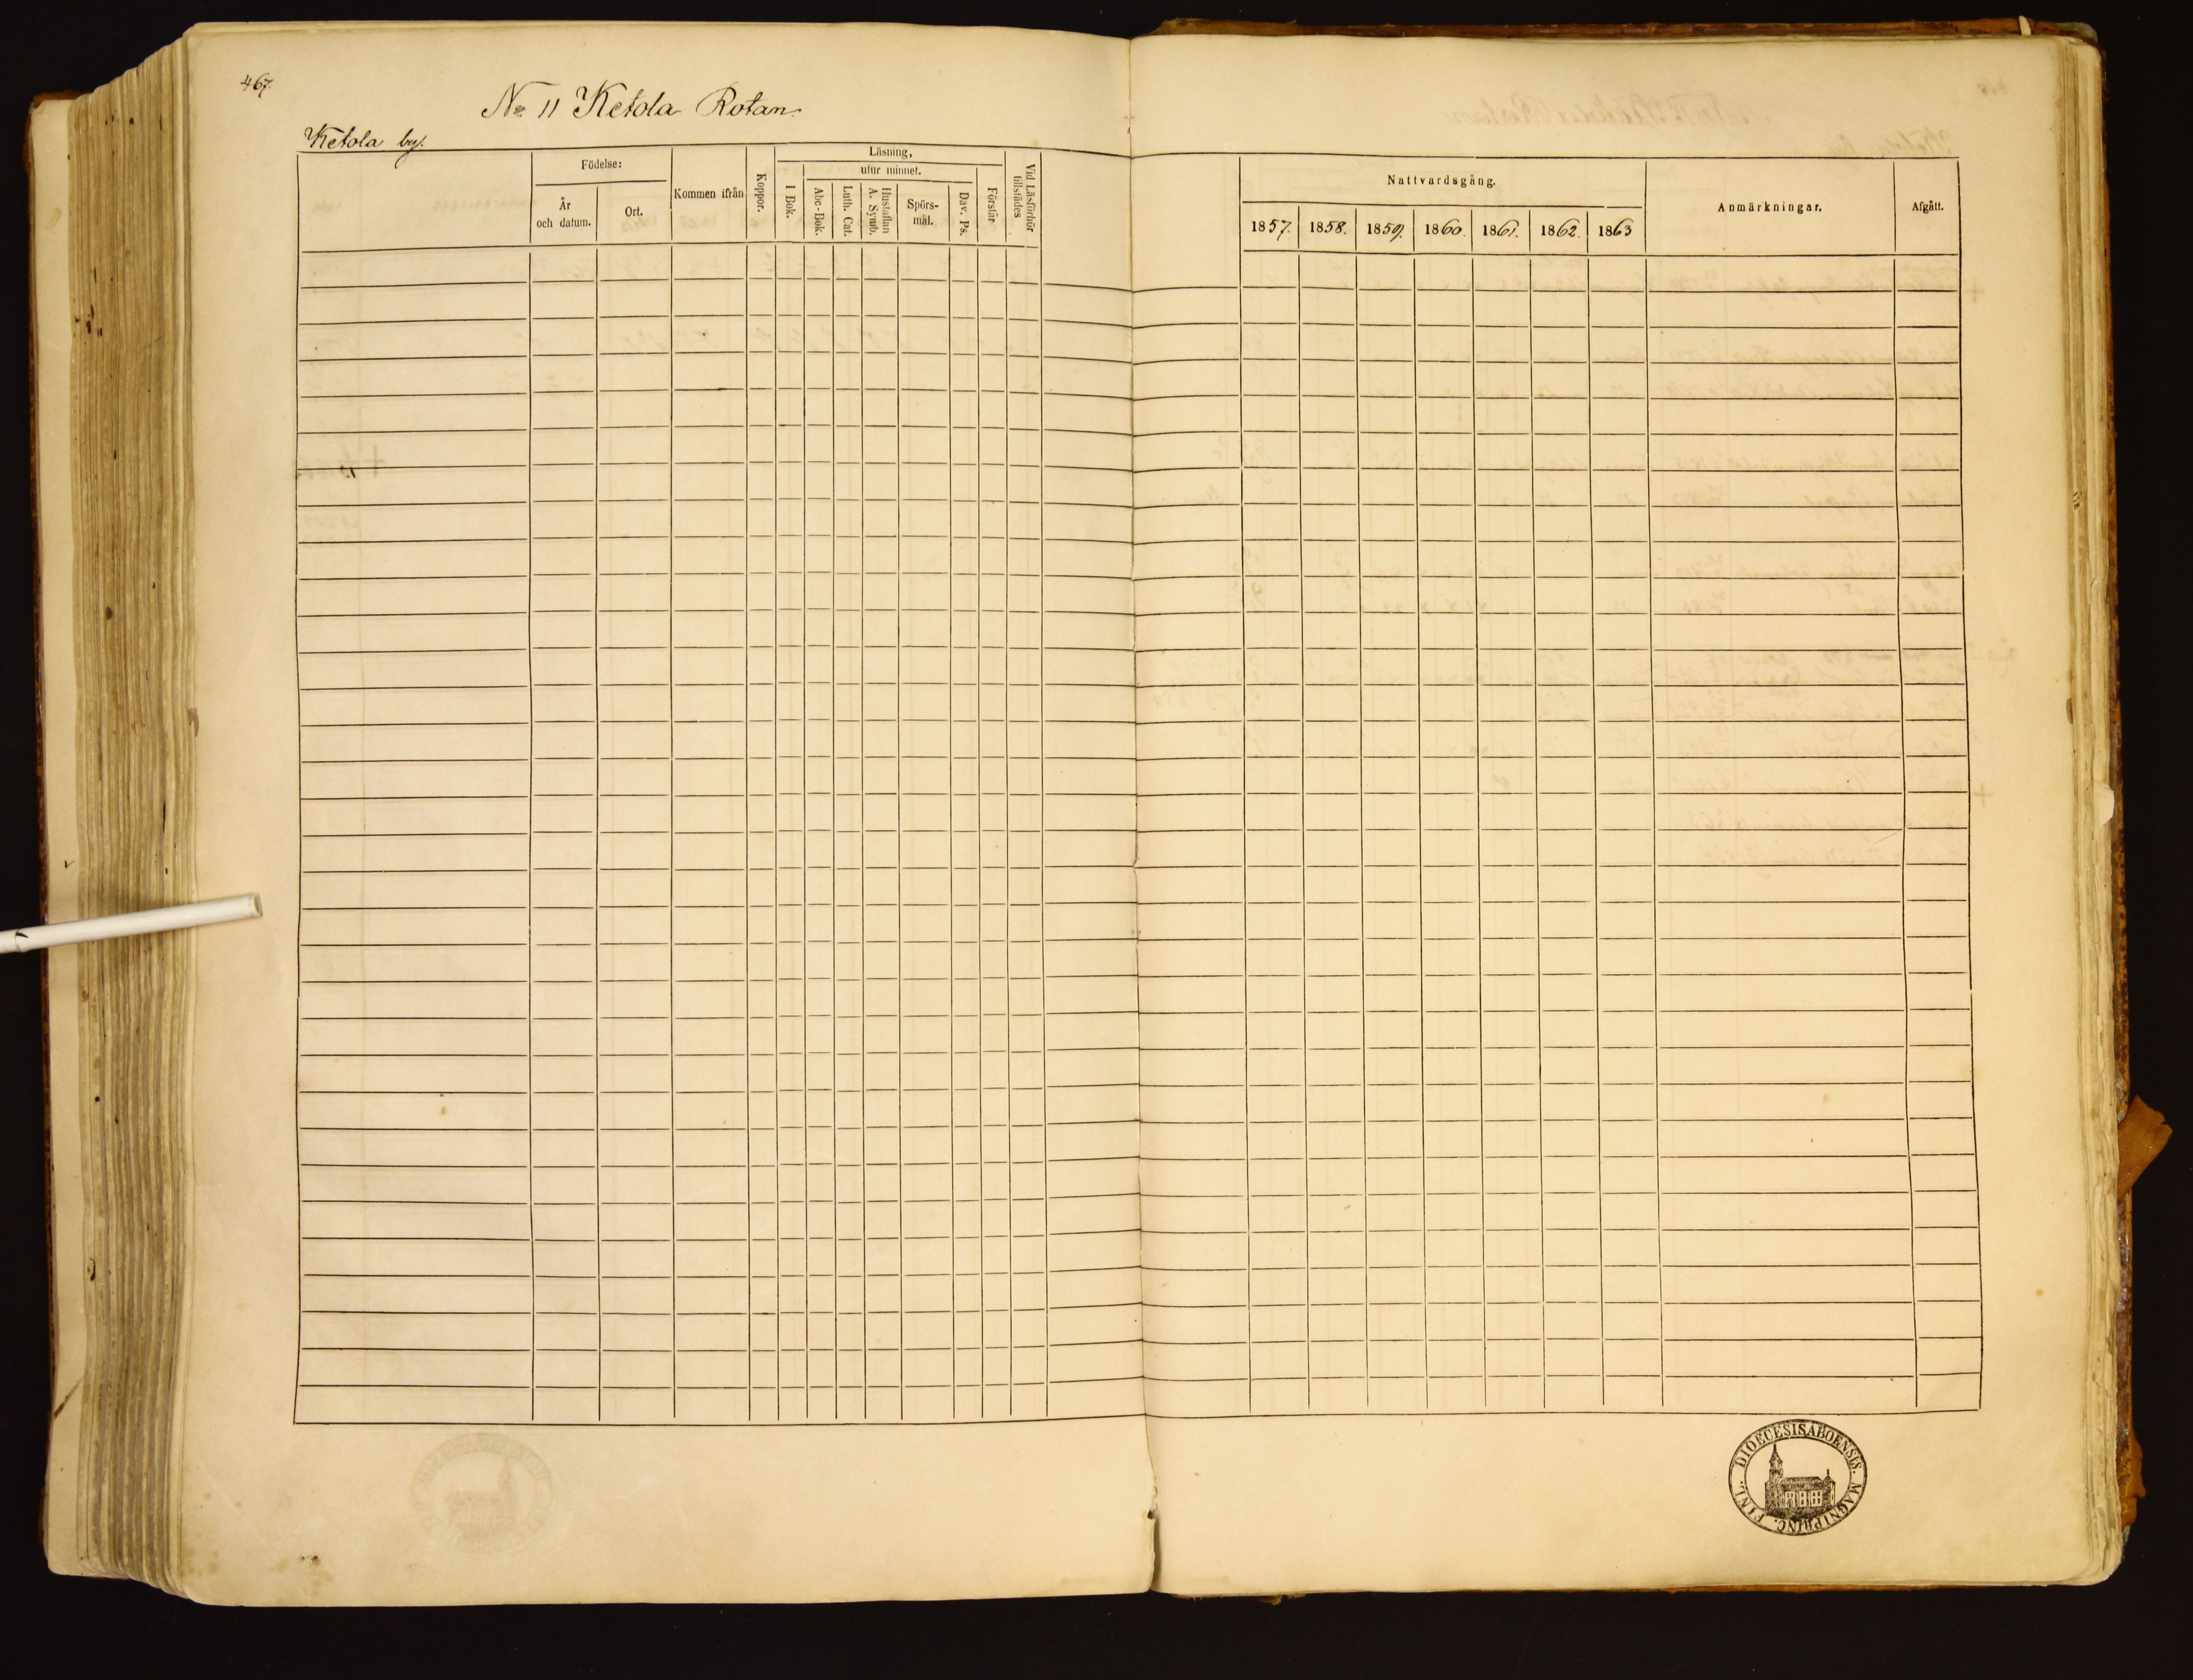 467.
No 11 Ketola Rotan.
Ketola by.
Födelse:
År och datum.
Ort.
Kommen ifrån
Koppor.
Läsning,
utur minnet.
I Bok.
Abc-Bok.
Luth. Cat.
Hustaflan A. Symb.
Spörs-mål.
Dav. Ps.
Förstår
Vid Läsförhör tillstädes
Nattvardsgång.
1857. 1858. 1859. 1860. 1861. 1862. 1863
Anmärkningar.
Afgått.
DIOECESIS ABOENSIS. MAGNI PRINC. FINL.